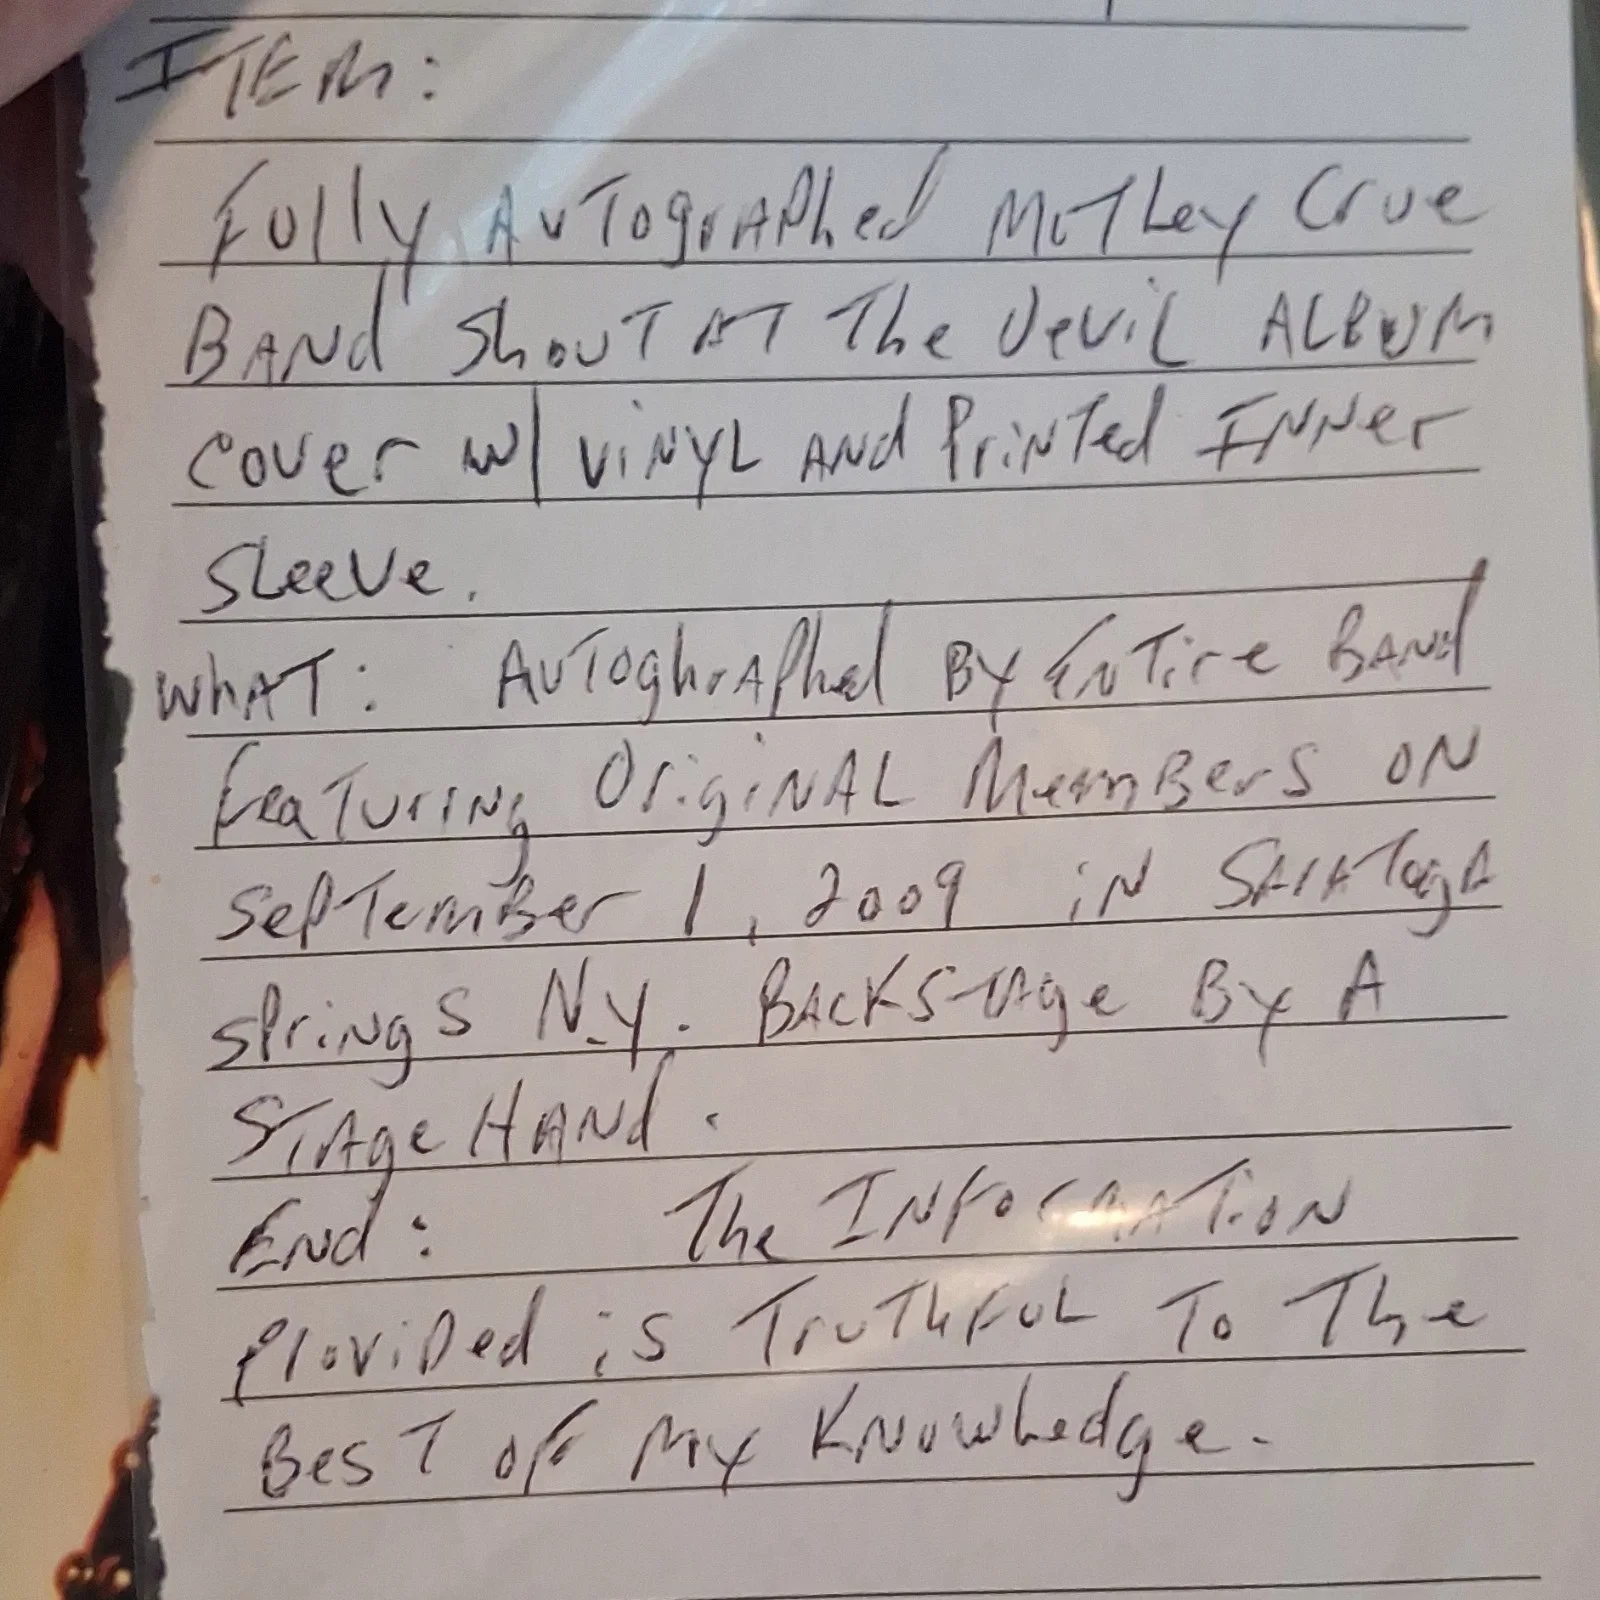 ITEM:
Fully Autographed Motley Crue
Band Shout At The Devil Album
Cover w/ vinyl and Printed Inner
Sleeve.
What: Autoghraphed By Entire Band
Featuring Original Members on
September 1, 2009 in Saratoga
Springs N.Y. Backstage By A
Stage Hand.
End: The Information
Provided is Truthful To The
Best of My Knowledge.